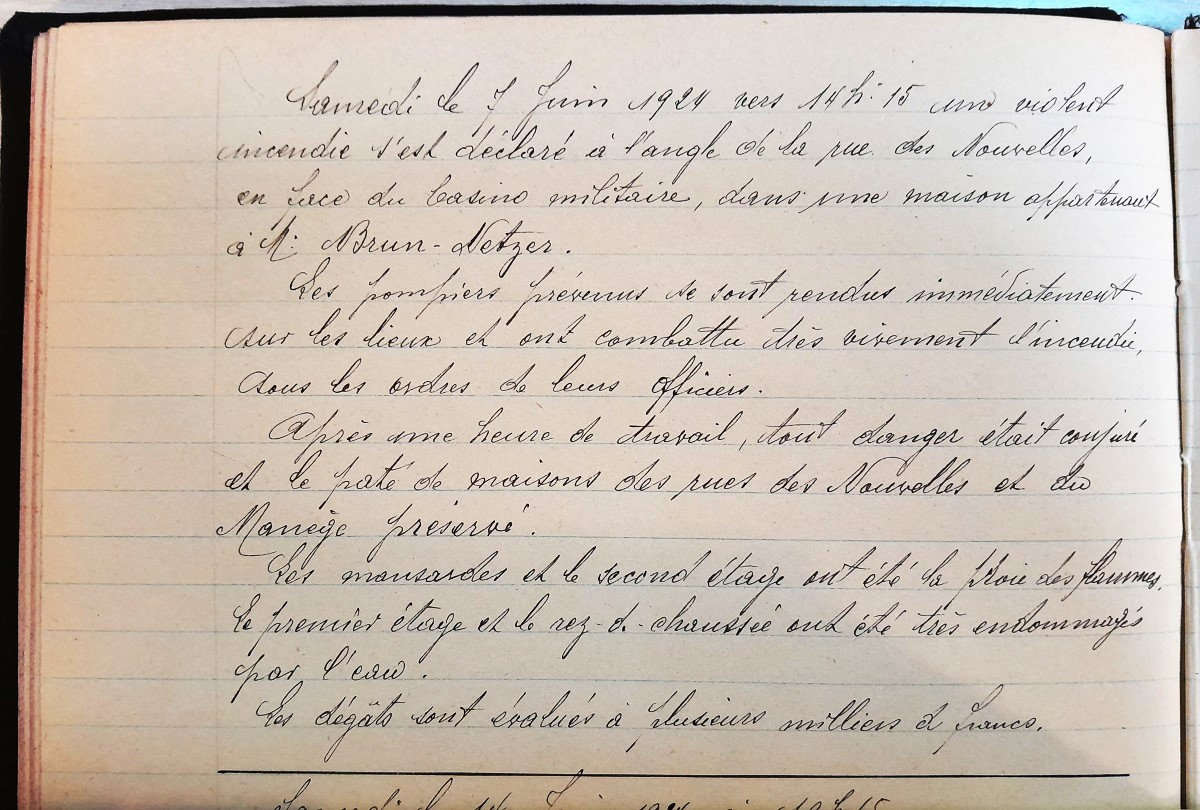 Samedi le 7 Juin 1924 vers 14 h. 15 un violent
incendie s'est déclaré à l'angle de la rue des Nouvelles,
en face du Casino militaire, dans une maison appartenant
à M. Brun-Netzer.
Les pompiers prévenus se sont rendus immédiatement
sur les lieux et ont combattu très vivement l'incendie,
sous les ordres de leurs officiers.
Après une heure de travail, tout danger était conjuré
et le paté de maisons des rues des Nouvelles et du
Manège préservé.
Les mansardes et le second étage ont été la proie des flammes.
le premier étage et le rez-d-chaussée ont été très endommagés
par l'eau.
Les dégâts sont évalués à plusieurs milliers d francs.